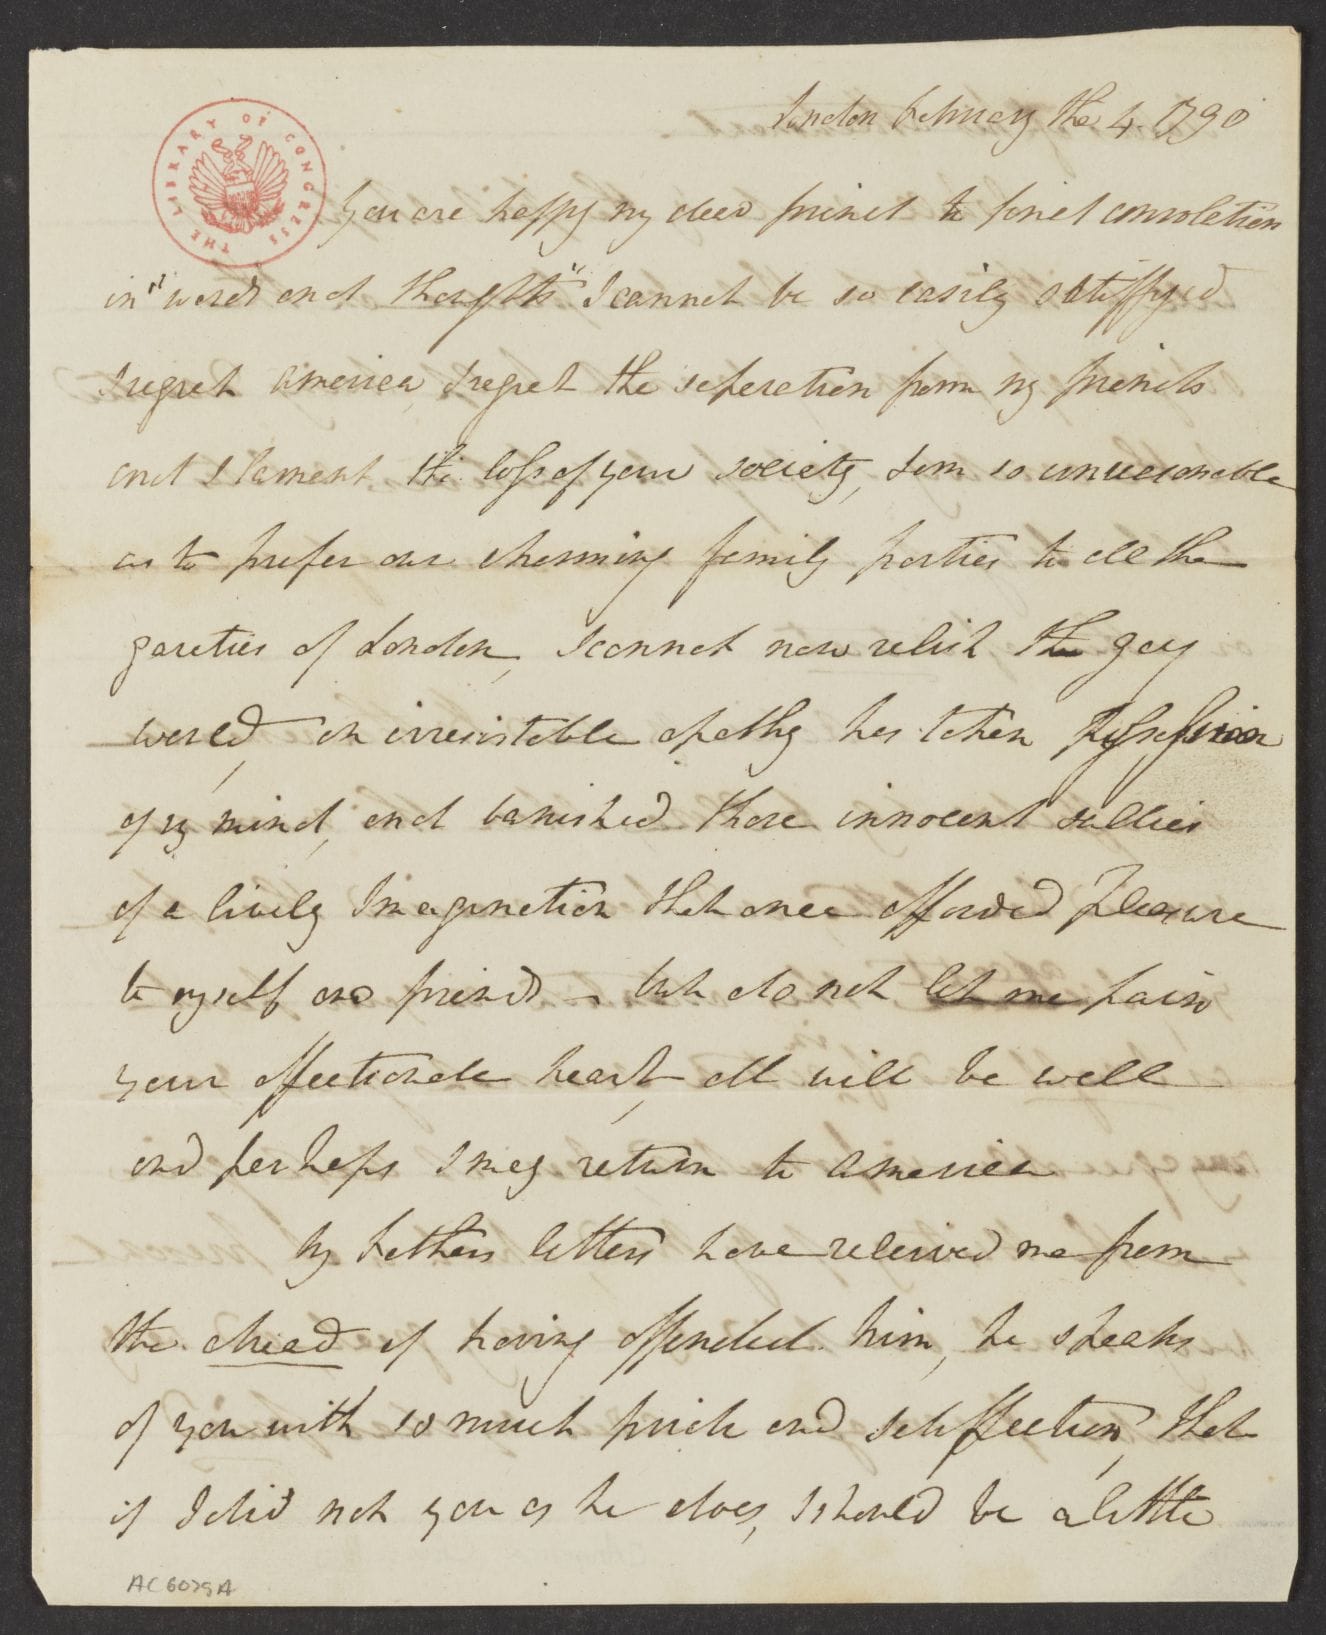 London February the 4. 1790
THE LIBRARY OF CONGRESS
You are happy my deer friend to find consolation
in "words and thoughts" I cannot be so easily satisfyed
I regret America, I regret the seperation from my friends
and I lament the loss of your society, I am so unreasonable
as to prefer our charming family parties to all the
gaieties of London, I cannot now relish the gay
world, an irresistable apathy has taken possession
of my mind, and banished those innocent sallies
of a lively Imagination that once afforded pleasure
to myself and friends – but do not let me pain
your affectionate heart, all will be well
and perhaps I may return to America
My Fathers letters have releived me from
the dread of having offended him, he speaks
of you with so much pride and satisfaction, that
if I did not you as he does, I should be a little
AC6075A